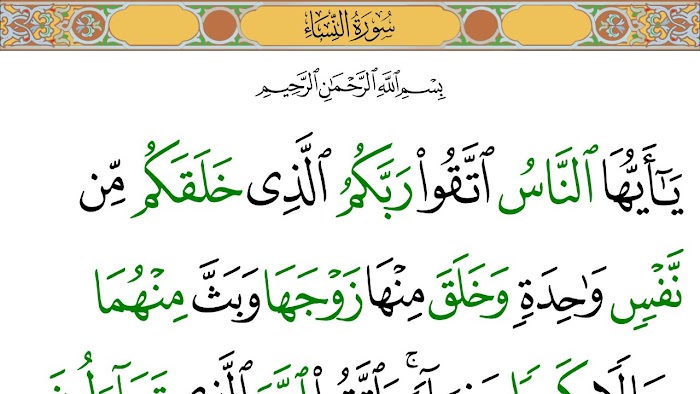 سُورَةُ النِّسَاءِ
بِسْمِ ٱللَّهِ ٱلرَّحْمَٰنِ ٱلرَّحِيمِ
يَـٰٓأَيُّهَا ٱلنَّاسُ ٱتَّقُوا۟ رَبَّكُمُ ٱلَّذِى خَلَقَكُم مِّن
نَّفْسٍ وَٰحِدَةٍ وَخَلَقَ مِنْهَا زَوْجَهَا وَبَثَّ مِنْهُمَا